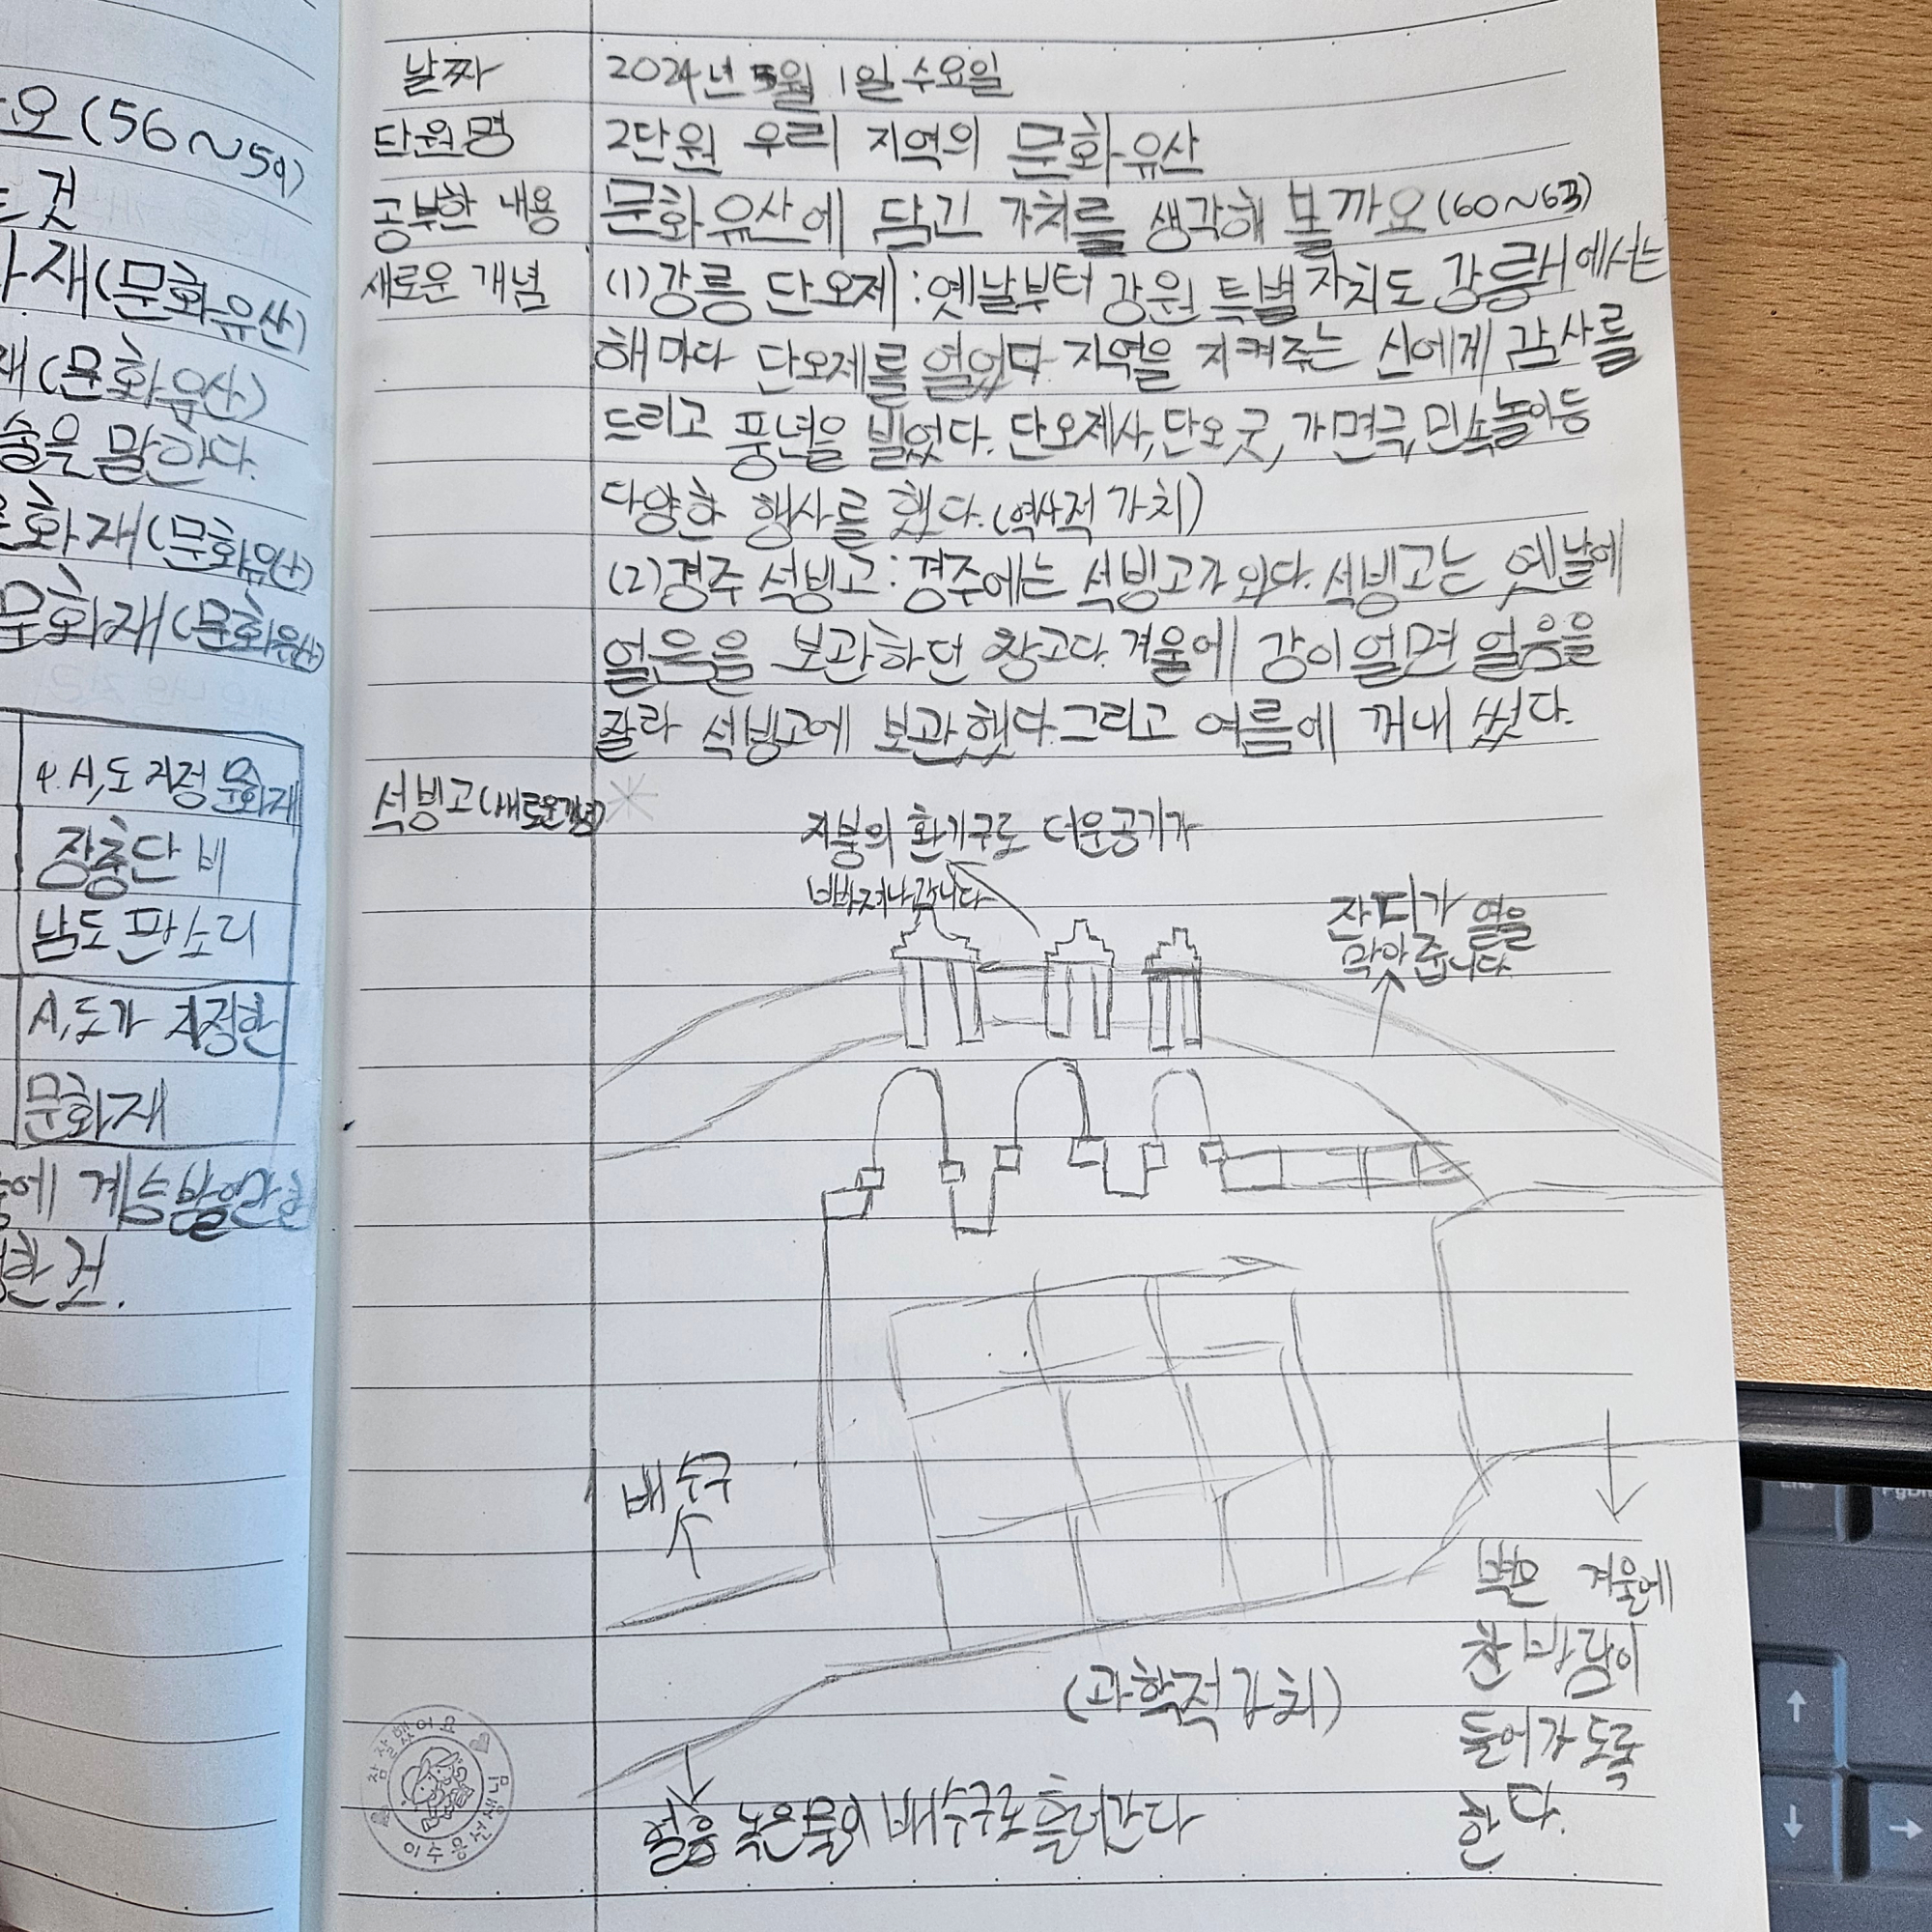 요(56~59)
것
재(문화유산)
재(문화유산)
술을 말한다.
문화재(문화유산)
문화재(문화유산)
4. 시,도 지정 문화재
장충단 비
남도 판소리
시,도가 지정한
문화재
에 계승
한 것.
날짜 2024년 5월 1일 수요일
단원명 2단원 우리 지역의 문화유산
공부한 내용 문화유산에 담긴 가치를 생각해 볼까요(60~63)
새로운 개념 (1)강릉 단오제:옛날부터 강원 특별 자치도 강릉시에서는
해마다 단오제를 열었다 지역을 지켜주는 신에게 감사를
드리고 풍년을 빌었다. 단오제사,단오굿, 가면극,민속놀이등
다양한 행사를 했다.(역사적 가치)
(2)경주 석빙고:경주에는 석빙고가 있다. 석빙고는 옛날에
얼음을 보관하던 창고다. 겨울에 강이 얼면 얼음을
잘라 석빙고에 보관했다.그리고 여름에 꺼내 썼다.
석빙고(새로운개념)
지붕의 환기구로 더운공기가
빠져나갑니다
잔디가 열을
막아 줍니다
배수구
벽은 겨울에
찬 바람이
들어가도록
한다.
(과학적가치)
얼음 녹은물이 배수구로 흘러간다
참 잘했어요
이수웅선생님
End
PgDn
↑
↓
→